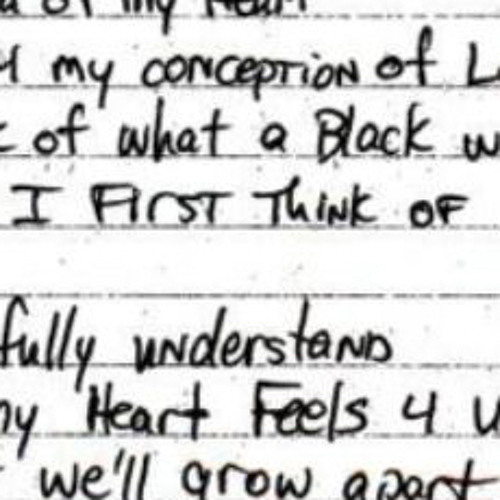 of my Heart
my conception of
of what a Black
I First Think of
fully understand
Heart Feels 4 U
we'll grow apart